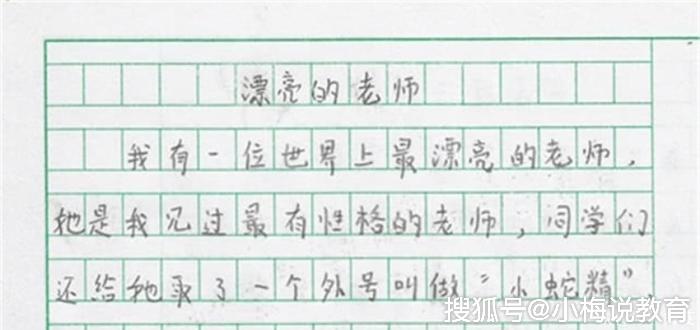 漂亮的老师
我有一位世界上最漂亮的老师，
她是我见过最有性格的老师，同学们
还给她取了一个外号叫做“小蛇精”
搜狐号@小梅说教育